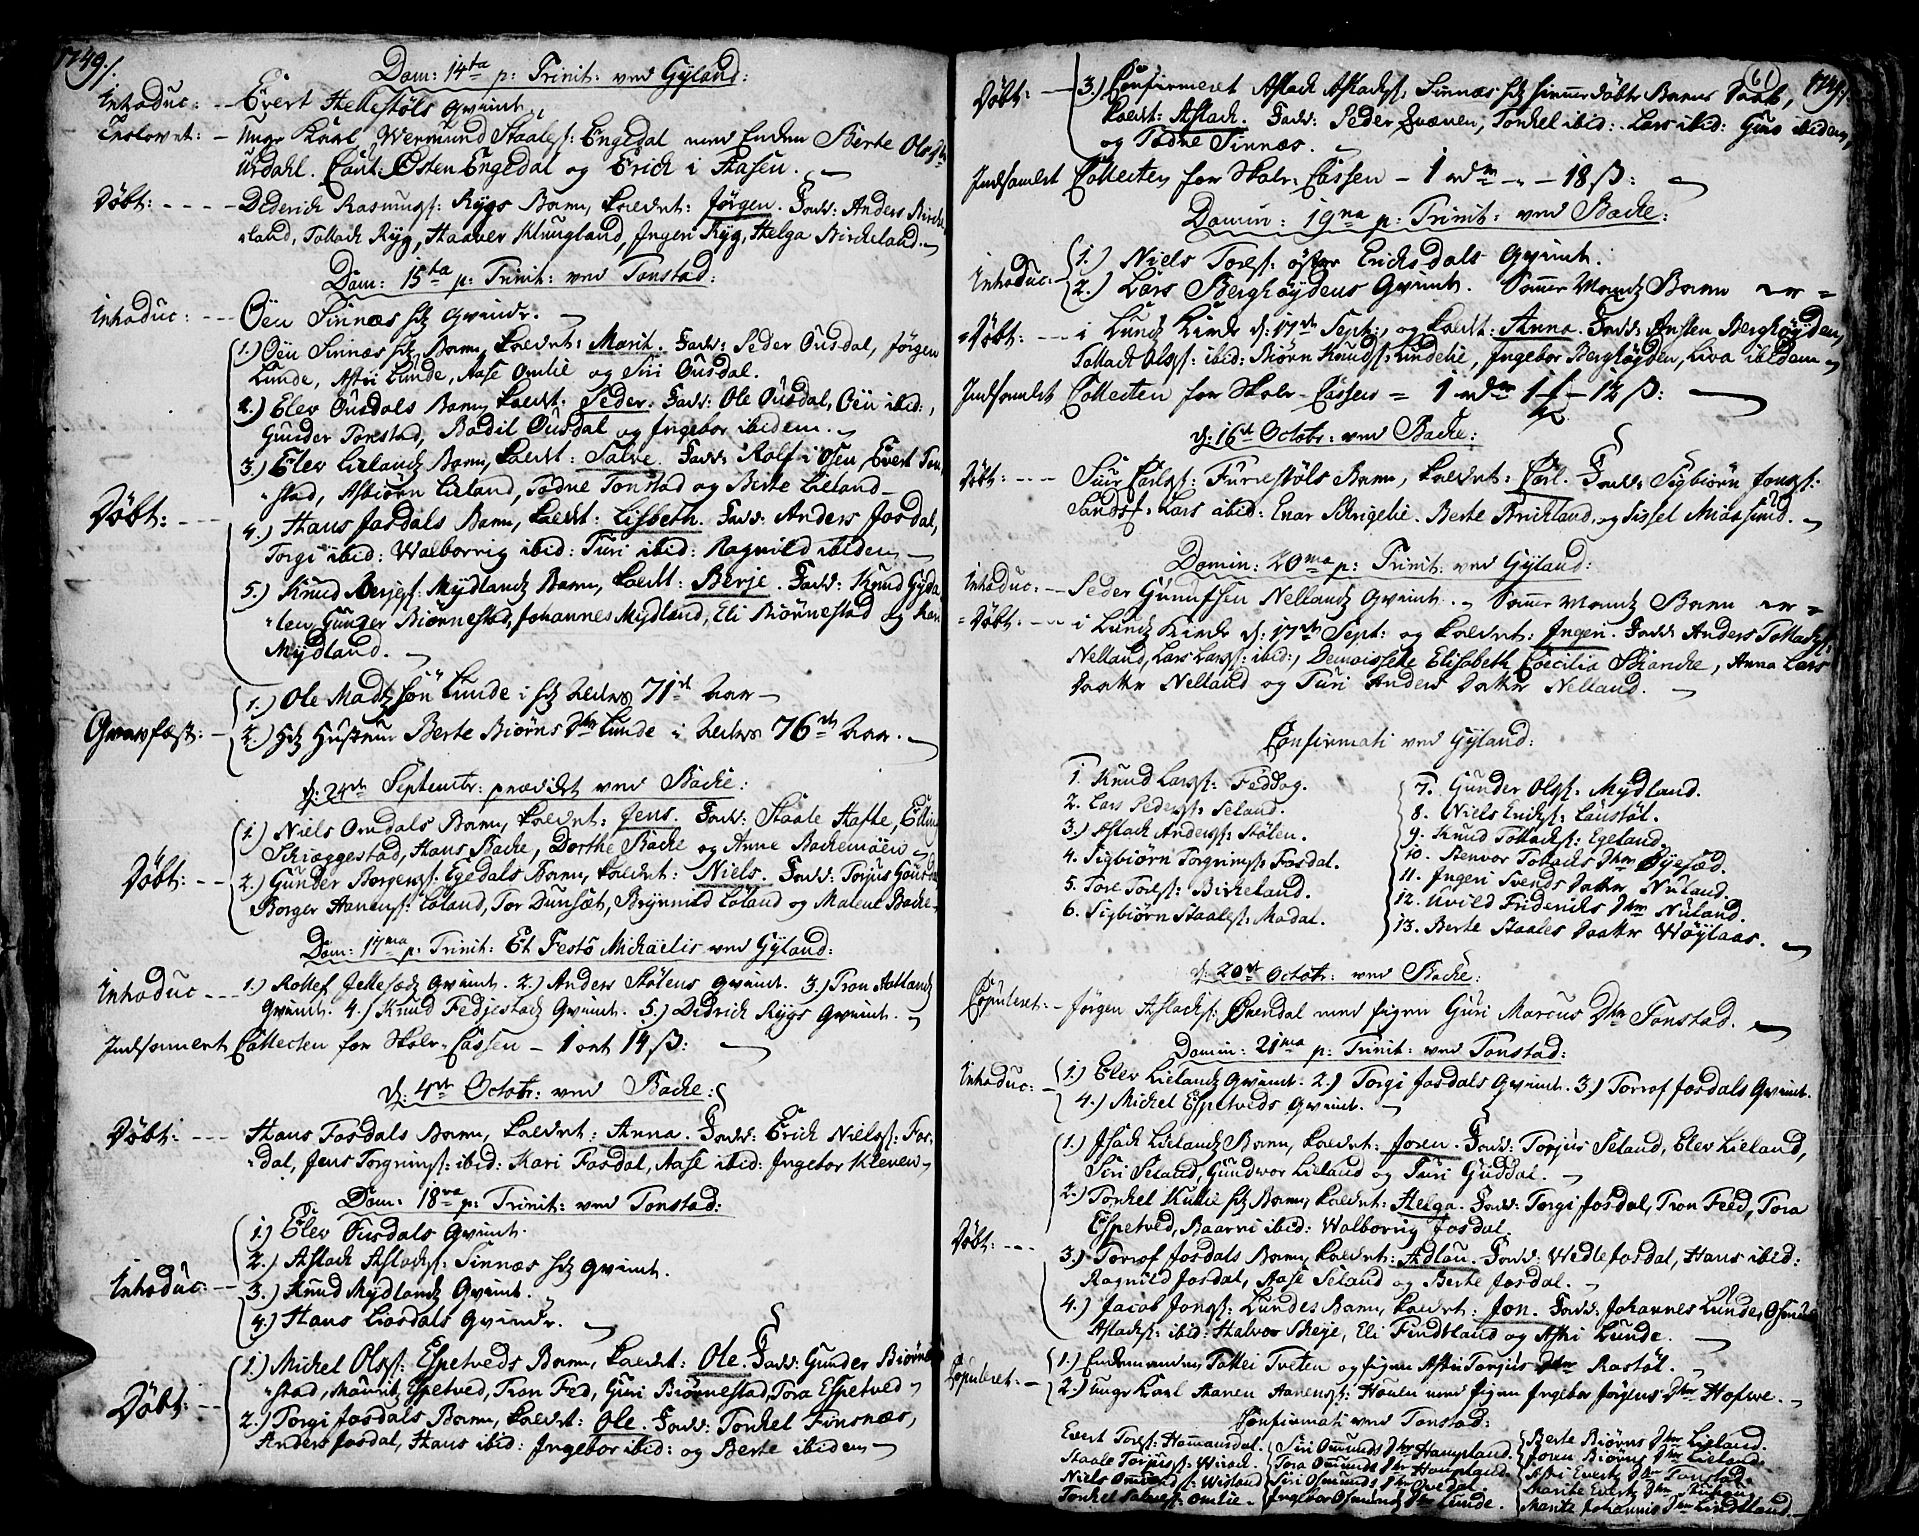 1749/.
Dom: 14ta p: Trinit: ved Gyland:
Introduc: -- Evert Hellestøls Qvinde.
Troelovet: - Unge Karl, Wermund Staaless: Engedal med Enken Berte Ols Dtr
Urdahl. Caut: Østen Engedal og Erich i Aasen.
Døbt: ---- Diderich Rasmuss: Rygs Barn, kaldet: Jørgen. Fadd: Anders Birche
-land, Tollach Ryg, Haaver Klungland, Ingeri Ryg, Helga Bircheland.
Dom: 15ta p: Trinit: ved Tonstad:
Introduc: --- Øen Sinnæs htz Qvinde.
1.) Øen Sinnæs htz Barn, kaldet: Marit. Fadd: Peder Ousdal, Jørgen
Lunde, Astri Lunde, Aase Omlie og Siri Ousdal.
2.) Elev Ousdals Barn, kaldet: Peder. Fadd: Ole Ousdal, Øen ibid:,
Gunder Tonstad, Bodil Ousdal og Ingebor ibidem.
3.) Elev Lielands Barn, kaldet: Salve. Fadd: Rolf i Osen, Evert Ton
-stad, Asbiørn Lieland, Tødne Tonstad og Berte Lieland
Døbt: ---
4.) Hans Josdals Barn, kaldet: Lisbeth. Fadd: Anders Josdal,
Torgi ibid: Walborrig ibid: Turi ibid: Ragnild ibidem
5.) Knud Berjes: Mydlands Barn, kaldet: Berje. Fadd: Knud Gyda
-len, Gunder Biørnestad, Johannes Mydland, Eli Biørnestad og Kari
Mydland.
1.) Ole Madtzsøn Lunde i htz Alders 71de Aar
Gravfæst: -
2.) Htz Hustrue Berte Biørns Dtr Lunde i Alders 76de Aar.
d: 24de Septembr: prædiket ved Backe:
1.) Niels Omdals Barn, kaldet: Jens. Fadd: Staale Hafte, Elling
Schieggestad, Hans Backe, Dorthe Backe og Anne Backemoen
Døbt: --
2.) Gunder Borgers: Egedals Barn, kaldet: Niels. Fadd: Torjus
Borger Aanens: Løland, Tor Dunsæt, Brynnild Løland og Malene Backe
Dom: 17ma p: Trinit: Et Festo Michaelis ved Gyland:
Introduc ---
1.) Rollef Qvinde. 2.) Anders Stølens Qvinde. 3.) Tron Aatlands
Qvinde. 4.) Knud Fedjestads Qvinde. 5.) Didrich Rygs Qvinde.
Indsamlet Collecten for Skole-Cassen - 1 ort 14 ß:
d: 4de Octobr: ved Backe:
Døbt: --- Hans Fosdals Barn, kaldet: Anna. Fadd: Erich Nielss: Fos-
-dal, Jens Torgrims: ibid: Kari Fosdal, Aase ibid: Ingebor Kleven
Dom: 18va p: Trinit: ved Tonstad:
1.) Elev Ousdals Qvinde.
2.) Aslach Aslachs: Sinnæs htz Qvinde.
Introduc: -
3.) Knud Mydlands Qvinde.
4.) Hans Liosdals Qvinde.
1.) Michel Olss: Espetveds Barn, kaldet: Ole. Fadd: Gunder Biørne
-stad, Maurits Espetved, Tron Fed, Guri Biørnestad, Tora Espetved
Døbt: --
2.) Torgi Josdals Barn, kaldet: Ole. Fadd: Tonkel Finsnæs,
Anders Josdal, Hans ibid: Ingebor ibid: og Berte ibidem
61
1749/.
Døbt: -
3.) Confirmeret Aslach Aslachs: Sinnæs htz hiemmedøbte Barns Daab,
kaldet: Aslach. Fadd: Peder Svænen, Tonkel ibid: Lars ibid: Guro ibidem,
og Tødne Sinnæs.
Indsamlet Collecten for Skole-Cassen - 1 rdr - 18 ß:
Domin: 19na p: Trinit: ved Backe:
1.) Niels Tores: øster Erichsdals Qvinde.
Introduc: -
2.) Lars Berghøydens Qvinde. Samme Mands Barn er
Døbt: --- i Lunds Kirke d: 17de Sept: og kaldet: Anna. Fadd: Austen Berghøyden,
Tollach Olss: ibid: Biørn Knuds: Lindelie, Ingebor Berghøyden, Liva ibidem
Indsamlet Collecten for Skole-Cassen = 1 rdr 1 - 12 ß:
d: 16de Octobr: ved Backe:
Døbt: --- Siur Carls: Furrestøls Barn, kaldet: Carl. Fadd: Sigbiørn Jons:
Lars ibid: Enar Skrigelie. Berte Brickland, og Sissel Miaasund.
Domin: 20ma p: Trinit: ved Gyland:
Introduc: -- Peder Gunufsen Nellands Qvinde. Samme Mands Barn er
Døbt: --- i Lunds Kirke d: 17de Sept: og kaldet: Ingeri. Fadd: Anders Tollachs:
Nelland, Lars Larss: ibid:, Demoiselle Elisabeth Coecilia Blancke, Anna Lars
Datter Nelland og Turi Anders Datter Nelland.
Confirmati ved Gyland:
1. Knud Larss: Feddog.
2. Lars Peders: Seland.
3.) Aslach Anders: Stølen.
4. Sigbiørn Torgrims: Fosdal.
5. Tore Tores: Bircheland.
6. Sigbiørn Staaless: Modal.
7. Gunder Olss: Mydland.
8. Niels Erichs: Laustøl.
9. Knud Tollachs: Egeland.
10. Stenvor Tollachs Dtr Øyesæd.
11. Ingeri Svends Datter Nuland.
12. Qvild Friderichs Dtr Nuland.
13. Berte Staales Datter Wøylaas.
d: 20de Octobr: ved Backe:
Copuleret: - Jørgen Aslachs: Ovendal med Pigen Guri Marcus Dtr Tonstad.
Domin: 21ma p: Trinit: ved Tonstad:
Introduc: -
1.) Elev Lielands Qvinde. 2.) Torgi Josdals Qvinde. 3.) Torrof Josdals Qvinde.
4.) Michel Espetveds Qvinde.
1.) Isach Lielands Barn, kaldet: Joren. Fadd: Torjus Seland, Elev Lieland,
Siri Seland, Gundvor Lieland og Turi Guddal.
2.) Tonkel Kulie htz Barn, kaldet: Helga. Fadd: Torgi Josdal, Tron Feed, Tora
Espetved, Baarni ibid: Walborrig Josdal.
Døbt: ---
3.) Torrof Josdals Barn, kaldet: Adlau. Fadd: Wedle Josdal, Hans ibid:
Ragnild Josdal, Aase Seland og Berte Josdal.
4.) Jacob Jons: Lundes Barn, kaldet: Jon. Fadd: Johannes Lunde, Osmund
Aslachs: ibid: Halvor Skeje, Eli Findtland og Astri Lunde.
Copuleret: -
1.) Enkemanden Tollei Tveten og Pigen Astri Torjus Dtr Rostøl.
2.) Unge Karl Aanen Aanens: Houen med Pigen Ingebor Jørgens Dtr Hofwe.
Confirmati ved Tonstad:
Evert Tores: Hommansdal.
Staale Torjus: Wirach.
Niels Omunds: Wisland
Tonkel Salves: Omlie
Siri Omunds Dtr Haugland.
Tora Omunds Dtr Haugland.
Siri Osmunds Dtr Qvedal.
Ingebor Osmunds Dtr Lunde.
Berte Biørns Dtr Lieland.
Joren Biørns Dtr Lieland.
Astri Everts Dtr Tonstad.
Marite Everts Dtr
Marite Johannis Dtr Lindtland.